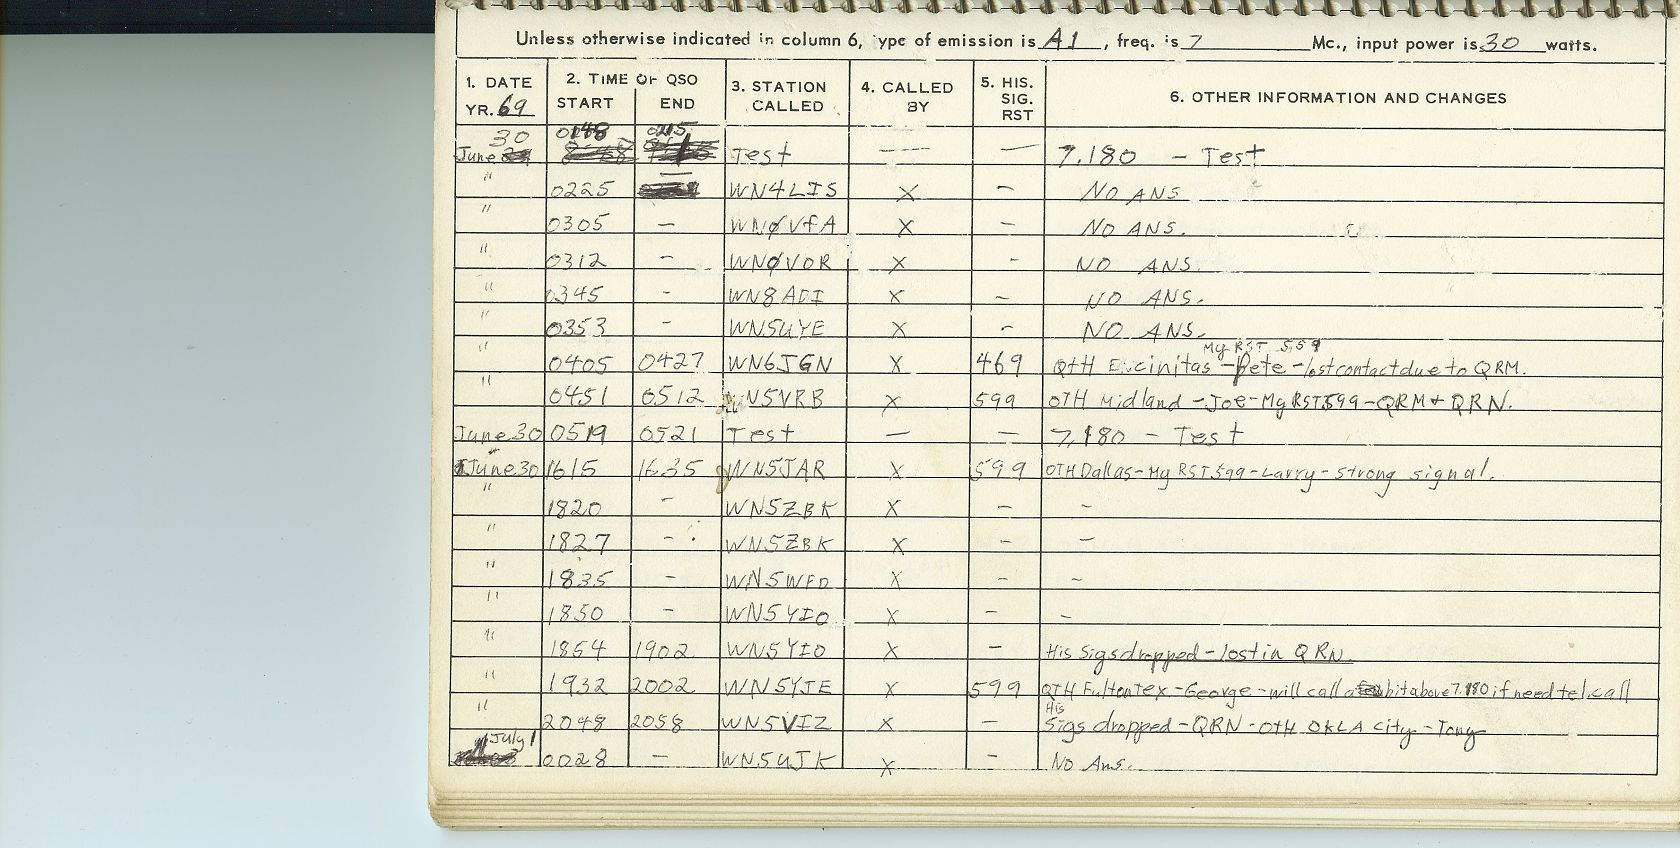 Unless otherwise indicated in column 6, ype of emission is A1, freq. is 7 Mc., input power is 30 watts.
1. DATE YR. 69 2. TIME OF QSO START END 3. STATION CALLED 4. CALLED BY 5. HIS. SIG. RST 6. OTHER INFORMATION AND CHANGES
June 30 0148 0215 Test — — 7.180 - Test
" 0225 — WN4LIS X - NO ANS
" 0305 - WNØVfA X - NO ANS.
" 0312 - WNØVOR X - NO ANS.
" 0345 - WN8ADI X - NO ANS.
" 0353 - WN5UYE X - NO ANS.
My RST 559
" 0405 0427 WN6JGN X 469 QtH Encinitas - Pete - lost contact due to QRM.
" 0451 0512 WN5VRB X 599 QTH Midland - Joe - My RST 599 - QRM + QRN.
June 30 0519 0521 Test — — 7.180 - Test
June 30 1615 1635 WN5JAR X 599 QTH Dallas - My RST 599 - Larry - strong signal.
" 1820 - WN5ZBK X - -
" 1827 - WN5ZBK X - -
" 1835 - WN5WFD X - -
" 1850 - WN5YIO X - -
" 1854 1902 WN5YIO X - His Sigs dropped - lost in QRN.
" 1932 2002 WN5YJE X 599 QTH Fulton Tex - George - will call a bit above 7.180 if need tel. call
" 2048 2058 WN5VIZ X - His Sigs dropped - QRN - QTH OKLA City - Tony
July 1 0028 — WN5UJK X - No Ans.